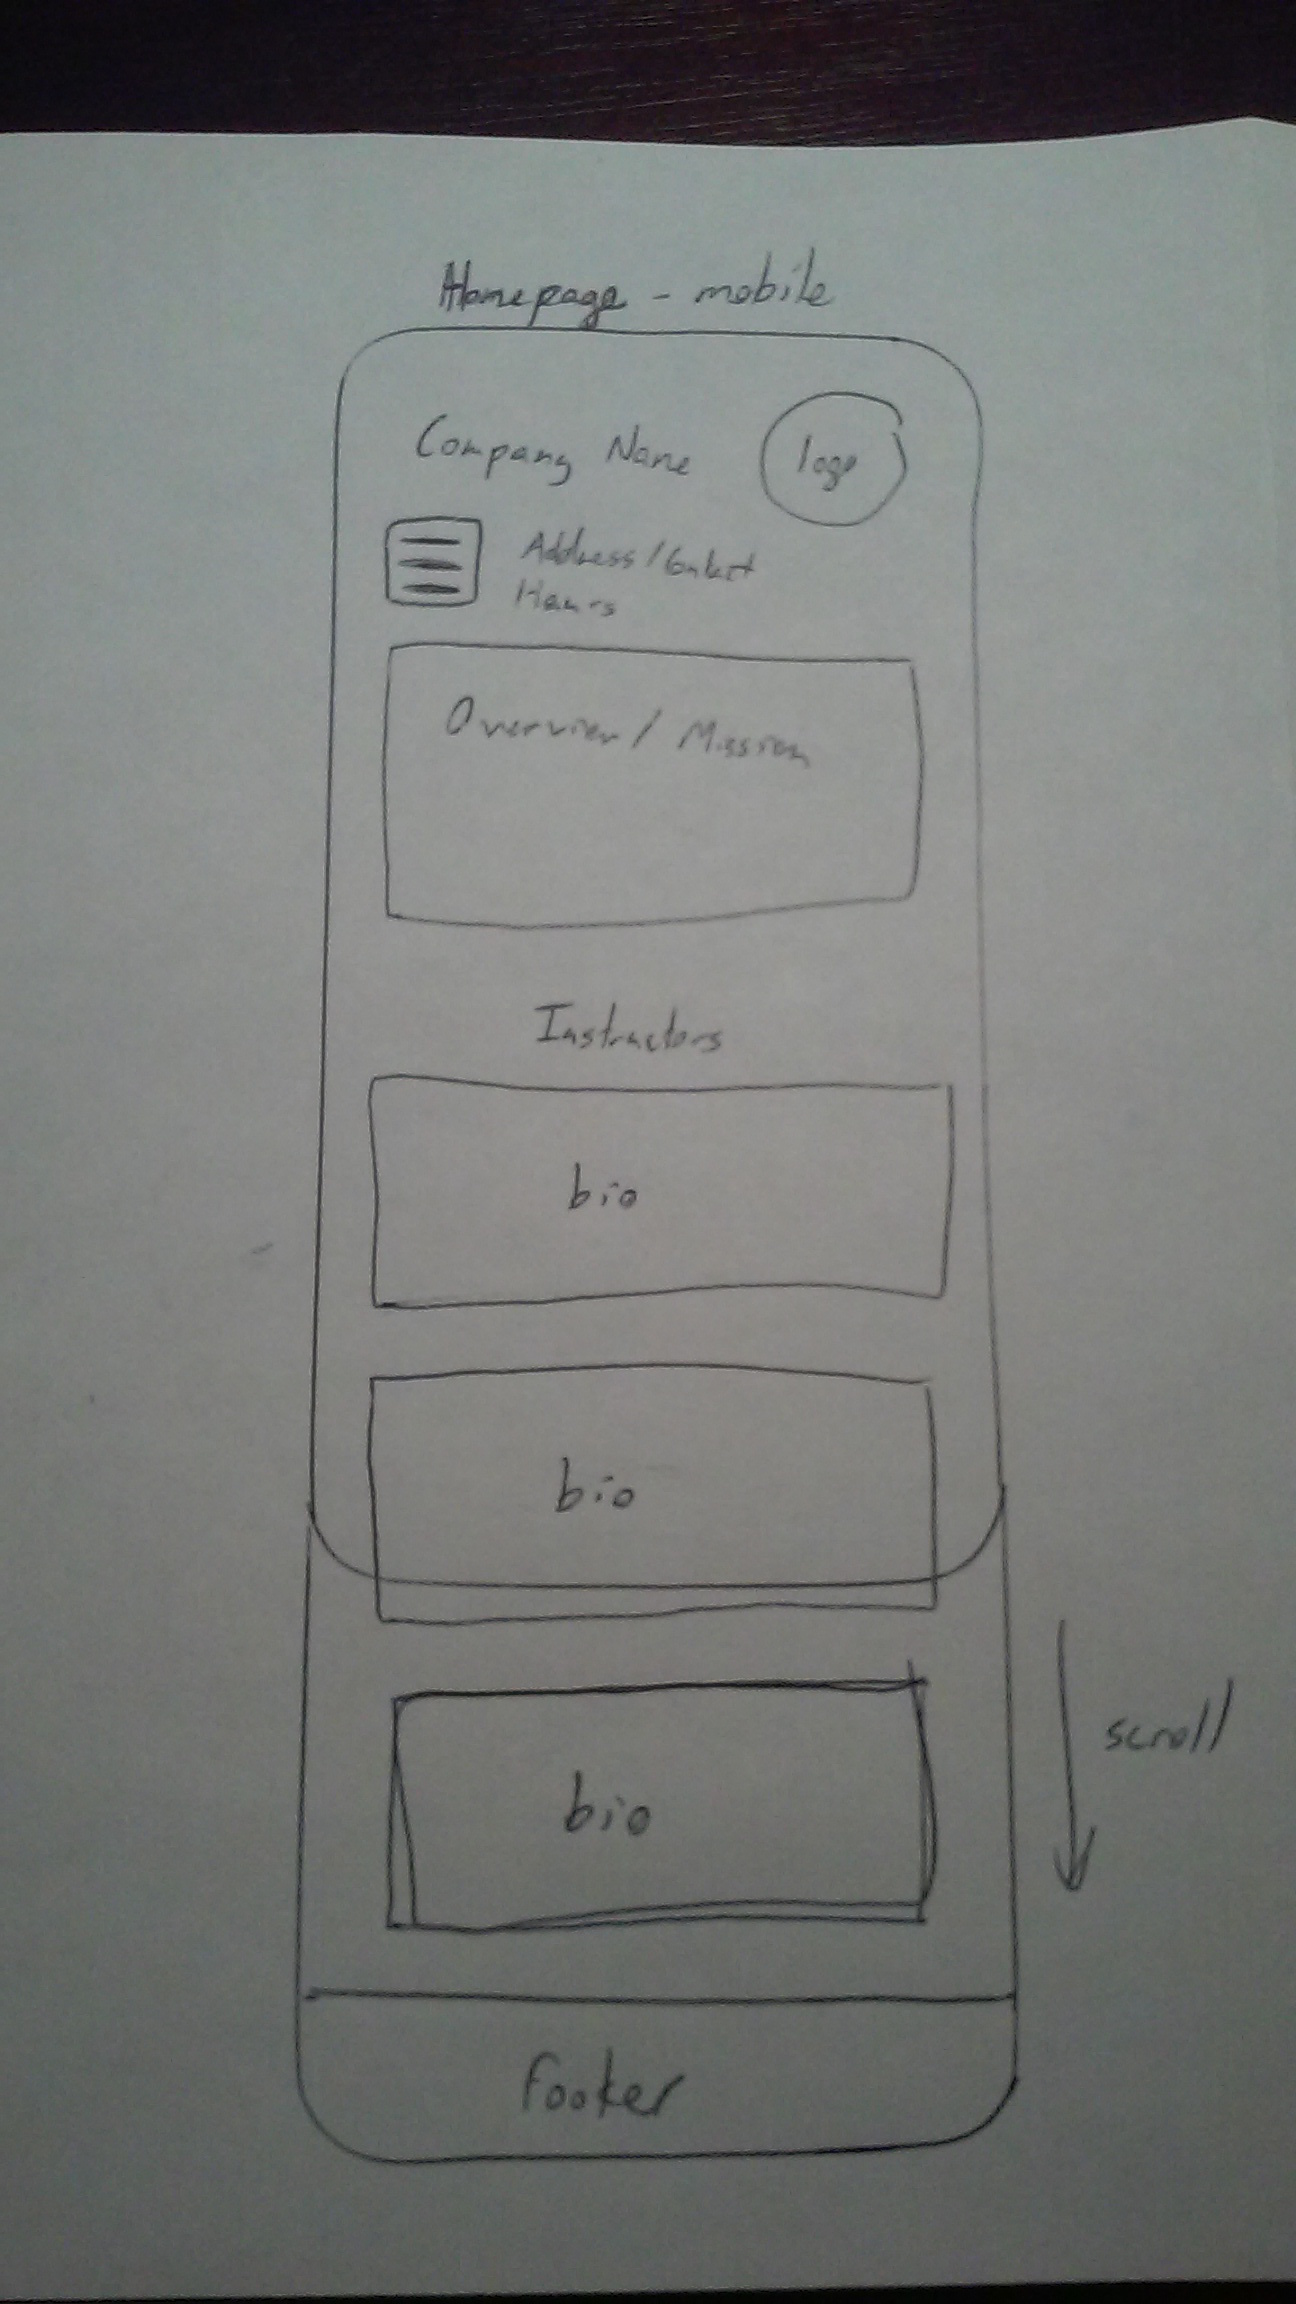 Homepage - mobile
Company Name
logo
Address/Contact
Hours
Overview/ Mission
Instructors
bio
bio
bio
scroll
Footer